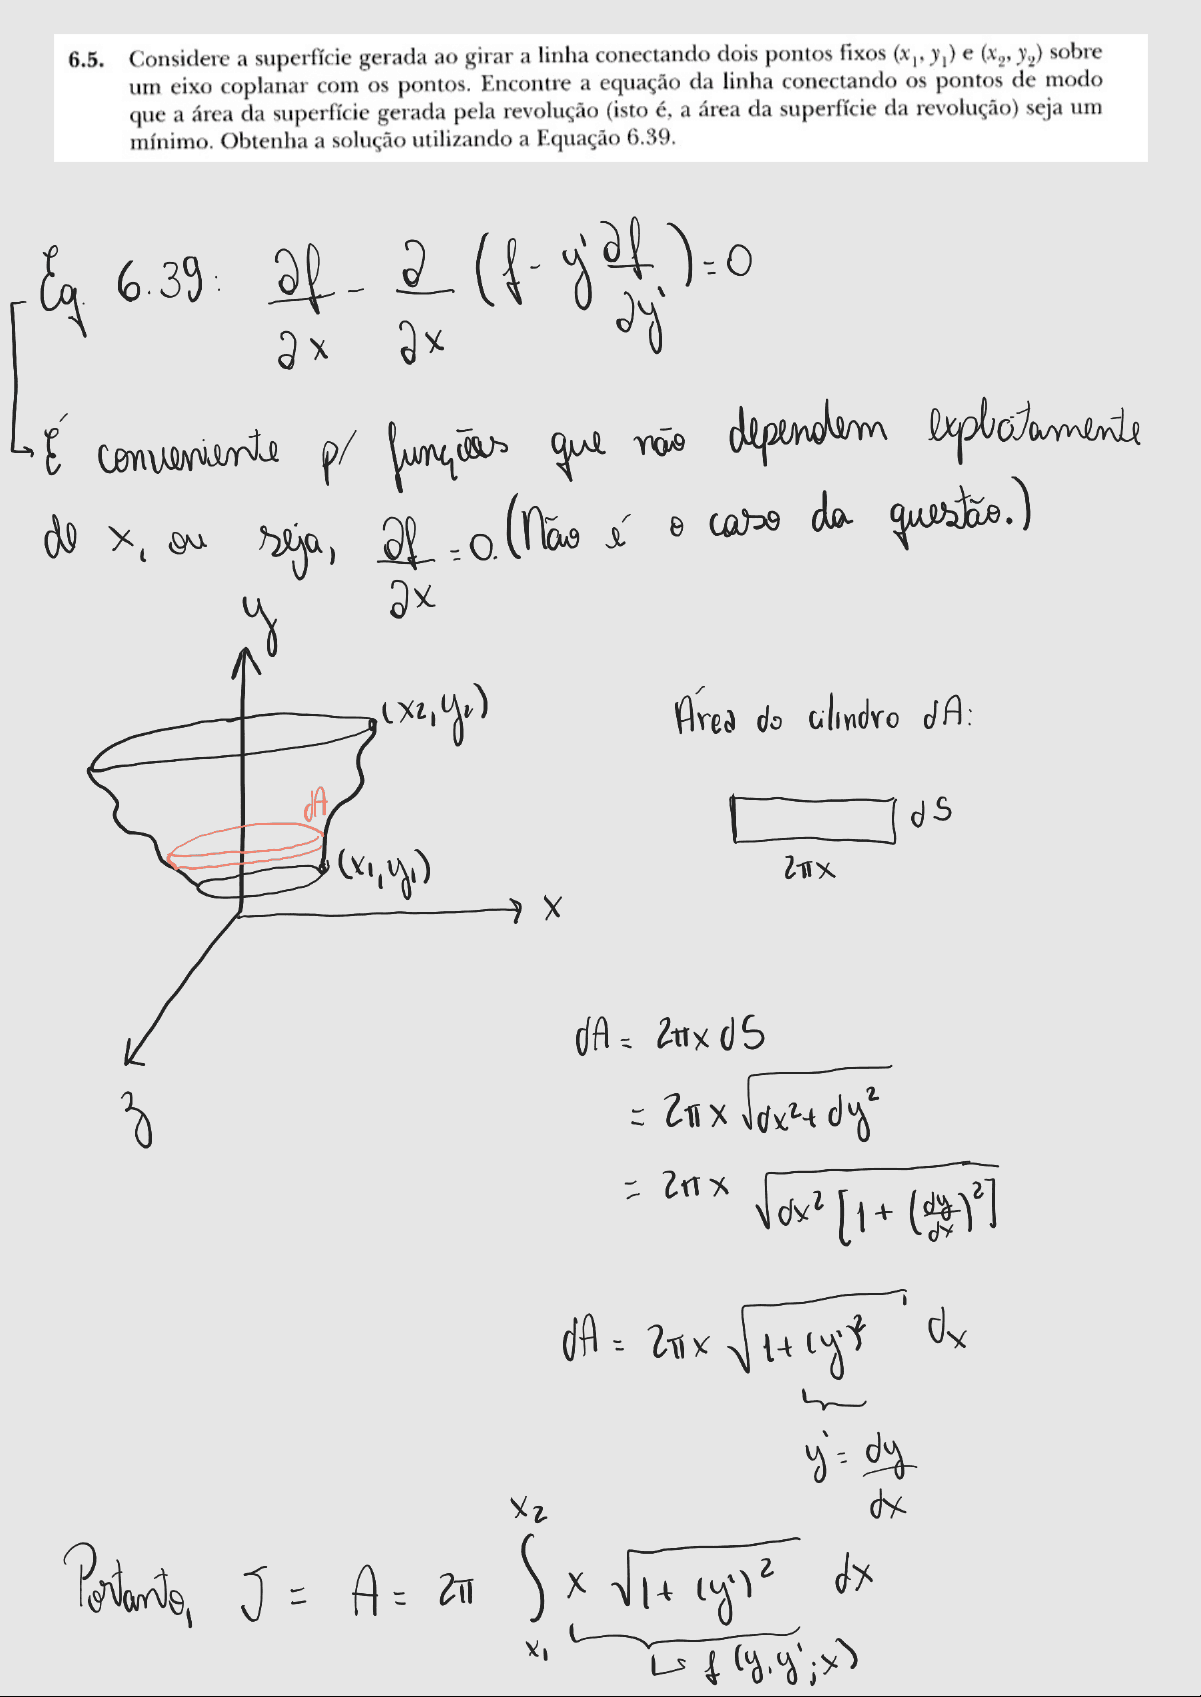 6.5. Considere a superfície gerada ao girar a linha conectando dois pontos fixos (x₁, y₁) e (x₂, y₂) sobre
um eixo coplanar com os pontos. Encontre a equação da linha conectando os pontos de modo
que a área da superfície gerada pela revolução (isto é, a área da superfície da revolução) seja um
mínimo. Obtenha a solução utilizando a Equação 6.39.
Eq. 6.39: ∂f/∂x - ∂/∂x (f - y' ∂f/∂y') = 0
É conveniente p/ funções que não dependem explicitamente
de x, ou seja, ∂f/∂x = 0. (Não é o caso da questão.)
y
(x₂, y₂)
Área do cilindro dA:
dA
dS
(x₁, y₁)
2πx
x
z
dA = 2πx dS
= 2πx √(dx² + dy²)
= 2πx √(dx² [1 + (dy/dx)²])
dA = 2πx √(1 + (y')²) dx
y' = dy/dx
Portanto, J = A = 2π ∫ₓ₁ˣ² x √(1 + (y')²) dx
↳ f (y, y'; x)